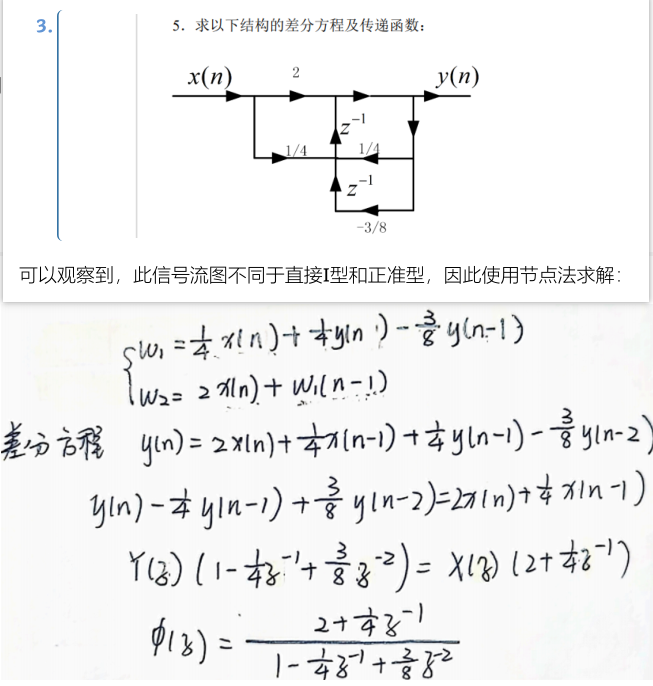 3.
5．求以下结构的差分方程及传递函数：
x(n) 2 y(n)
z⁻¹
1/4 1/4
z⁻¹
-3/8
可以观察到，此信号流图不同于直接I型和正准型，因此使用节点法求解：
W₁ = 1/4 x(n) + 1/4 y(n) - 3/8 y(n-1)
W₂ = 2x(n) + W₁(n-1)
差分方程 y(n) = 2x(n) + 1/4 x(n-1) + 1/4 y(n-1) - 3/8 y(n-2)
y(n) - 1/4 y(n-1) + 3/8 y(n-2) = 2x(n) + 1/4 x(n-1)
Y(z) (1 - 1/4 z⁻¹ + 3/8 z⁻²) = X(z) (2 + 1/4 z⁻¹)
φ(z) = 2 + 1/4 z⁻¹
1 - 1/4 z⁻¹ + 3/8 z⁻²